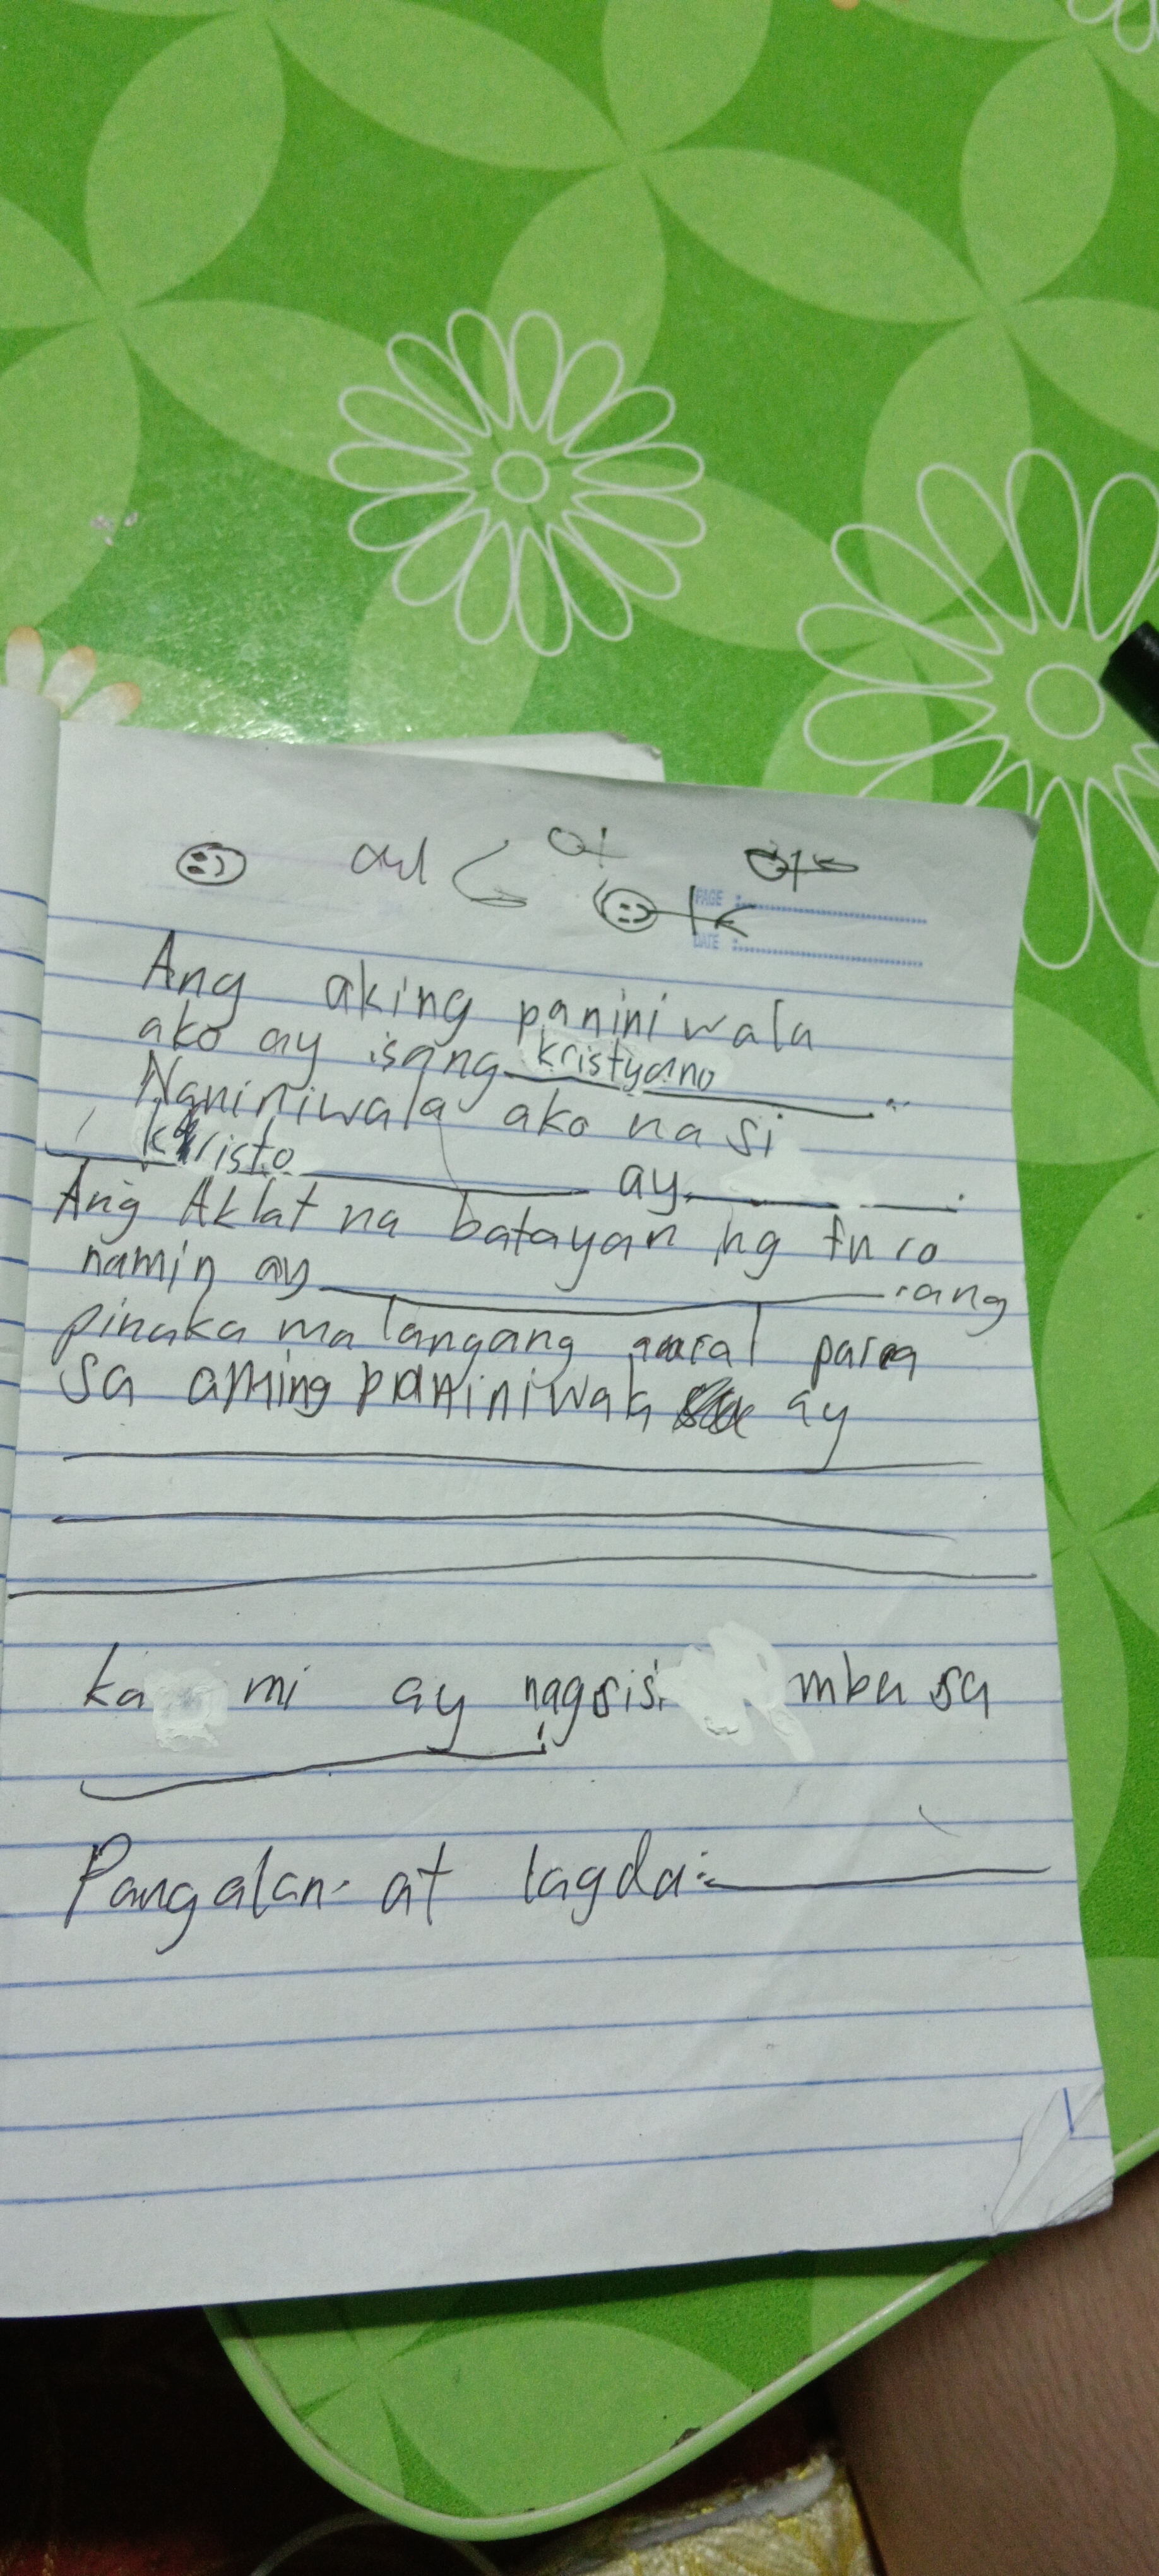 PAGE :
DATE :
Ang aking paniniwala
ako ay isang kristyano
Naniniwala ako na si
kristo ay .
Ang Aklat na batayan ng turo
namin ay . ang
pinaka malangang aaral para
sa aming paniniwala ay
ka mi ay nagsisi mba sa
Pangalan at lagda: